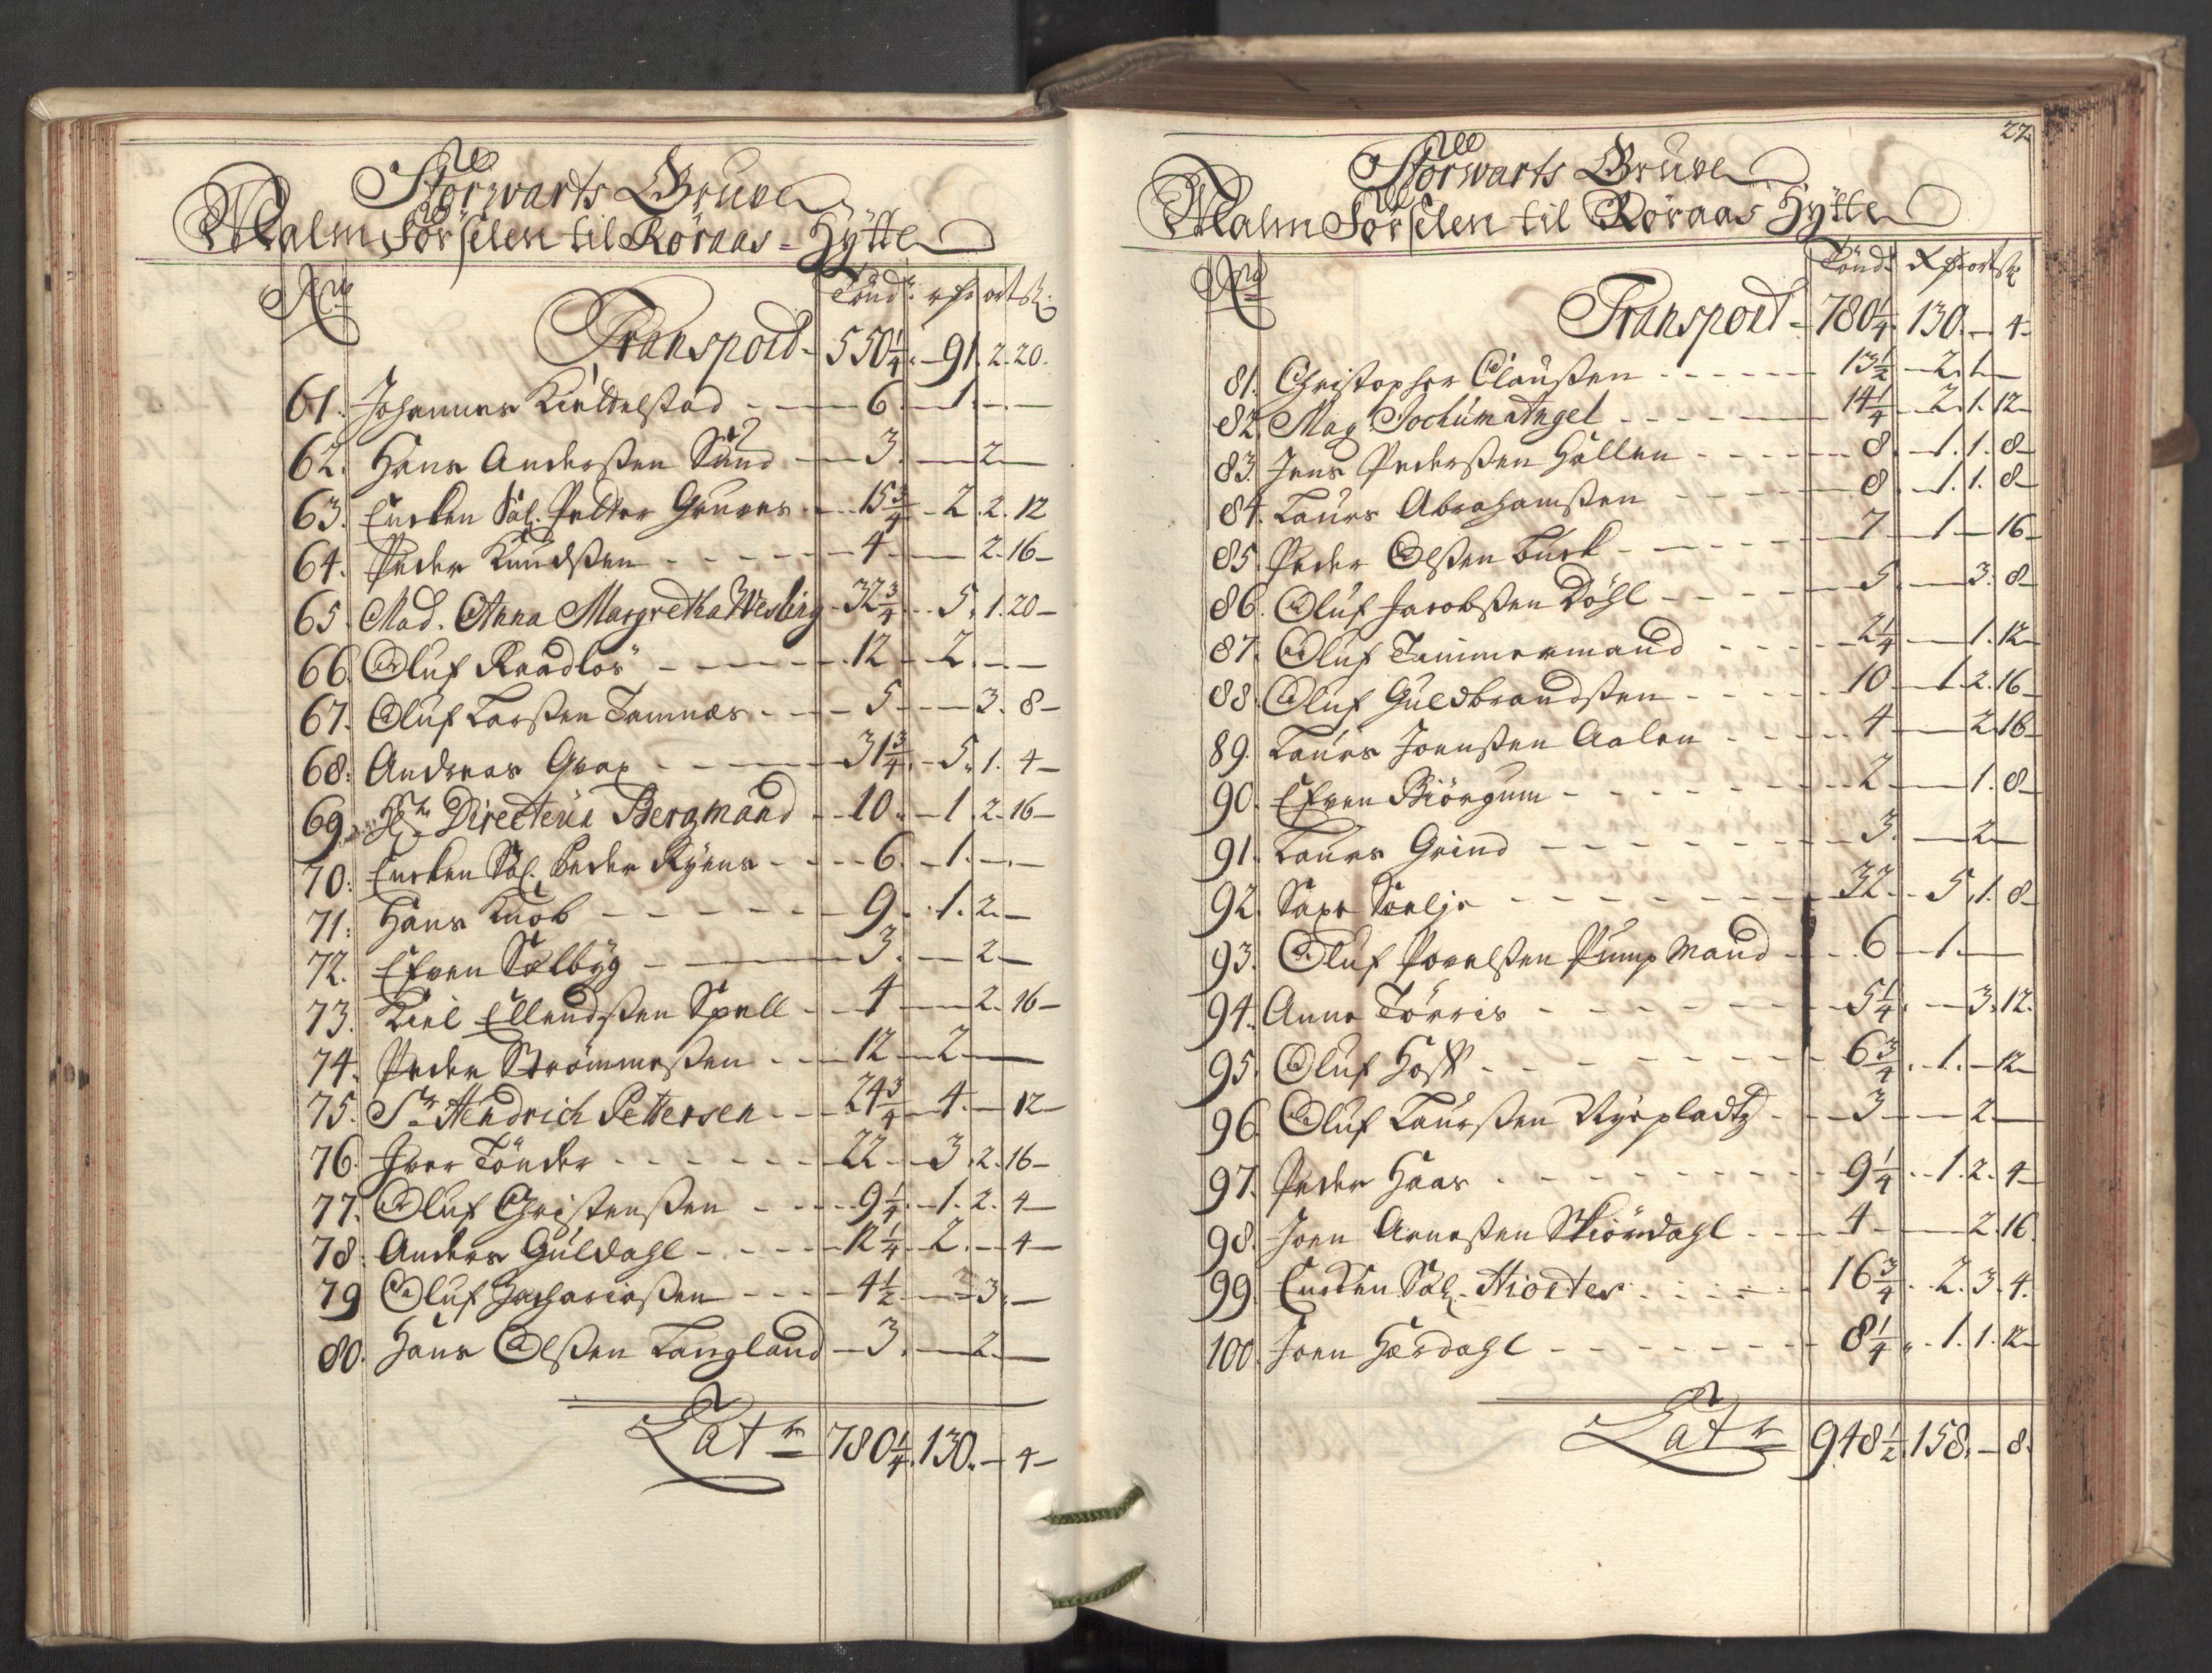 Storwarts Gruve
Malm Förselen til Röraas-Hÿtte
No Tönd: rdr ort sk:
Transport - 550 1/4. - 91. 2. 20.
61. Johannes Kieldelstad - - 6. - 1. - -
62. Hans Anderßen Sund - 3. - 2 -
63. Encken Sal. Petter Gruves - 15 3/4 - 2. 2. 12
64. Peder Knudßen - - - - 4 - - 2. 16 -
65. Mad. Anna Margretha Wesling - 32 3/4 - 5. 1. 20 -
66. Oluf Raadlös - - - - 12 - 2. - -
67. Oluf Larßen Tamnæs - - - 5 - - 3. 8 -
68. Andreas Graa - - - - 31 3/4. - 5. 1. 4 -
69. Hr Directeur Bergmand - - 10. - 1. 2. 16 -
70. Encken Sal. Peder Ryens - - - 6. - 1. - -
71. Hans Knob - - - - - - 9. - 1. 2. -
72. Efven Sælbÿg - - - 3. - - 2 -
73. Kiel Ellendßen Spell - - 4 - - 2. 16 -
74. Peder Strømmeßen - - - 12 - 2 - -
75. Sr Hendrich Pettersen - - 24 3/4 - 4. - 12 -
76. Iver Tönder - - - - - - 22 - - 3. 2. 16 -
77. Oluf Christenßen - - - 9 1/4. - 1. 2. 4 -
78. Anders Guldahl - - - - 12 1/4 - 2. - 4 -
79 Oluf Zachariaßen - - - 4 1/2 - - 3. -
80. Hans Olßen Langland - 3. - 2. -
Latr 780 1/4. 130. - 4 -
22.
Storwarts Gruve
Malm Förselen til Röraas Hÿtte
No Tönd: Rdr ort sk
Transport - 780 1/4. 130. - 4 -
81. Christopher Claußen - - - - - - 13 1/2 - 2. 1. -
82. Mag. Jochum Angel - - - - - 14 1/4. - 2. 1. 12 -
83. Jens Pederßen Hallen - - - - - 8. - 1. 1. 8 -
84. Laurs Abrahamßen - - - - 8. - 1. 1. 8 -
85. Peder Olßen Buck - - - - - 7 - 1 - 16 -
86. Oluf Jacobßen Döhl - - - - 5. - 3. 8 -
87. Oluf Tammermand - - - - 2 1/4 - - 1. 12 -
88. Oluf Guldbrandßen - - - - 10 - 1. 2. 16 -
89. Laurs Joenßen Aalen - - - - 4 - - 2. 16 -
90. Efven Biörgum - - - - - - - 2 - - 1. 8 -
91. Laurs Grind - - - - - - - 3. - - 2 -
92. Saxe Sælje - - - - - - - 32. - 5. 1. 8 -
93. Oluf Povelßen Pump Mand - - - 6 - 1. -
94. Anne Törris - - - - - - - 5 1/4. - 3. 12.
95. Oluf Hoff - - - - - - - 6 3/4. - 1. - 12 -
96. Oluf Laurßen Nÿepladtz - - - 3 - - 2. -
97. Peder Haas - - - - - - - 9 1/4 - - 1. 2. 4 -
98. Joen Arneßen Stiördahl - - - 4 - - 2. 16.
99. Encken Sal. Hiorter - - - - 16 3/4. - 2. 3. 4.
100. Joen Hærdahl - - - - - - - 8 1/4. - 1. 1. 12 -
Latr 948 1/2. 158. - 8.